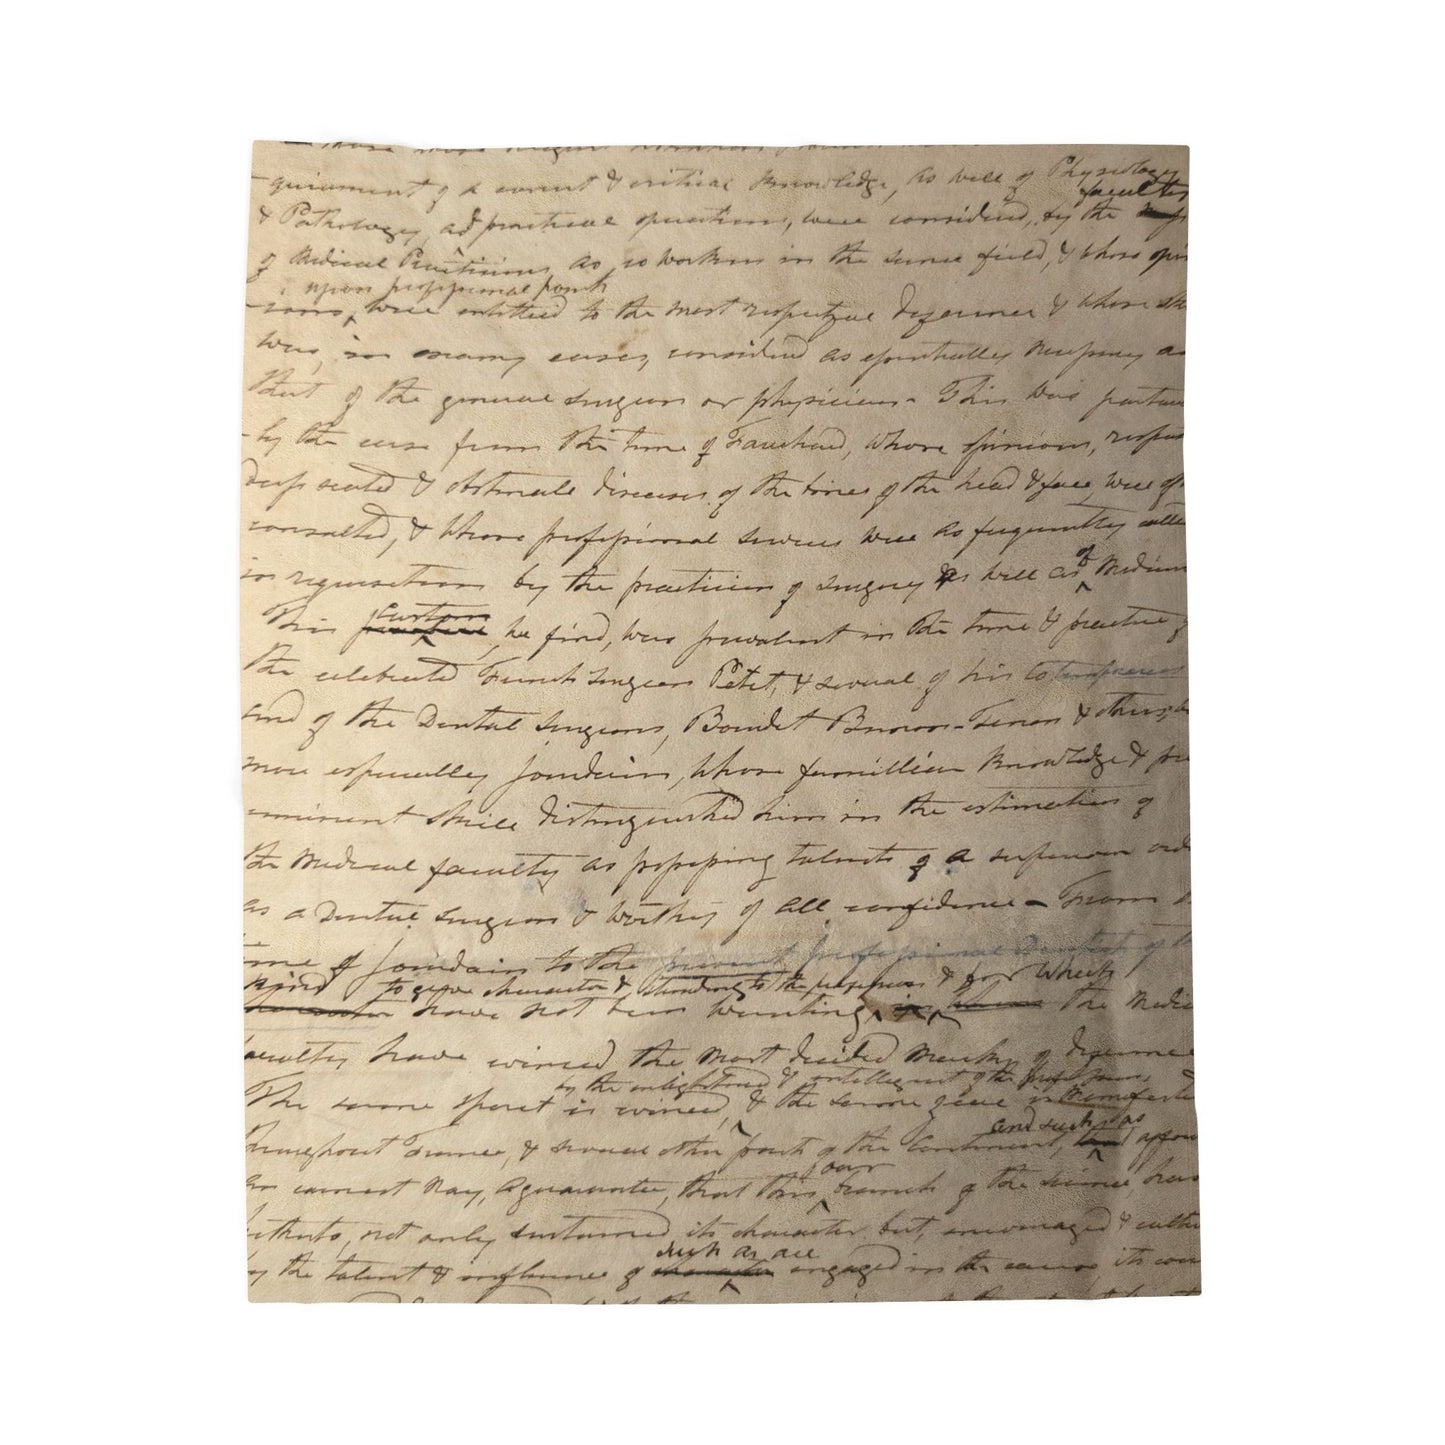 -quirement of a correct & critical Knowledge, as well of Physiology
faculty
& Pathology, as practical operations, were considered, by the
of Medical Practitioners as co workers in the same field, & whose opin
upon professional points
-ions, were entitled to the most respectful deference & whose sk
was, in many cases, considered as essentially necessary as
that of the general surgeon or physician - This was particu
-ly the case from the time of Fauchard, whose opinions, respec
deep seated & obstinate diseases of the bones of the head & face, were of
consulted, & whose professional services were as frequently calle
in requisition by the practitioner of surgery as well as of Medicine
custom
This he find, was prevalent in the time & practice of
the celebrated French Surgeon Petit, & several of his cotemporaries
and of the Dental Surgeons, Bourdet Bunon - & others, b
more especially Jourdain, whose familliar Knowledge & pro
eminent skill distinguished him in the estimation of
the Medical faculty as possessing talents of a superior orde
as a Dental Surgeon & worthy of all confidence - From th
time of Jourdain to the present professional Dentist of th
to give character & standing to the profession & for which
have not been wanting, the Medic
faculty have evinced the most decided marks of deference
by the enlightened & intelligent of the profession,
The same spirit is evinced, & the same zeal is Manifested
and such as
throughout France, & several other parts of the Continent, affor
our
an earnest may, a guarantee, that this branch of the science has
hitherto, not only sustained its character but, encouraged & cultiv
such as are
by the talent & influence of engaged in the cause its cou